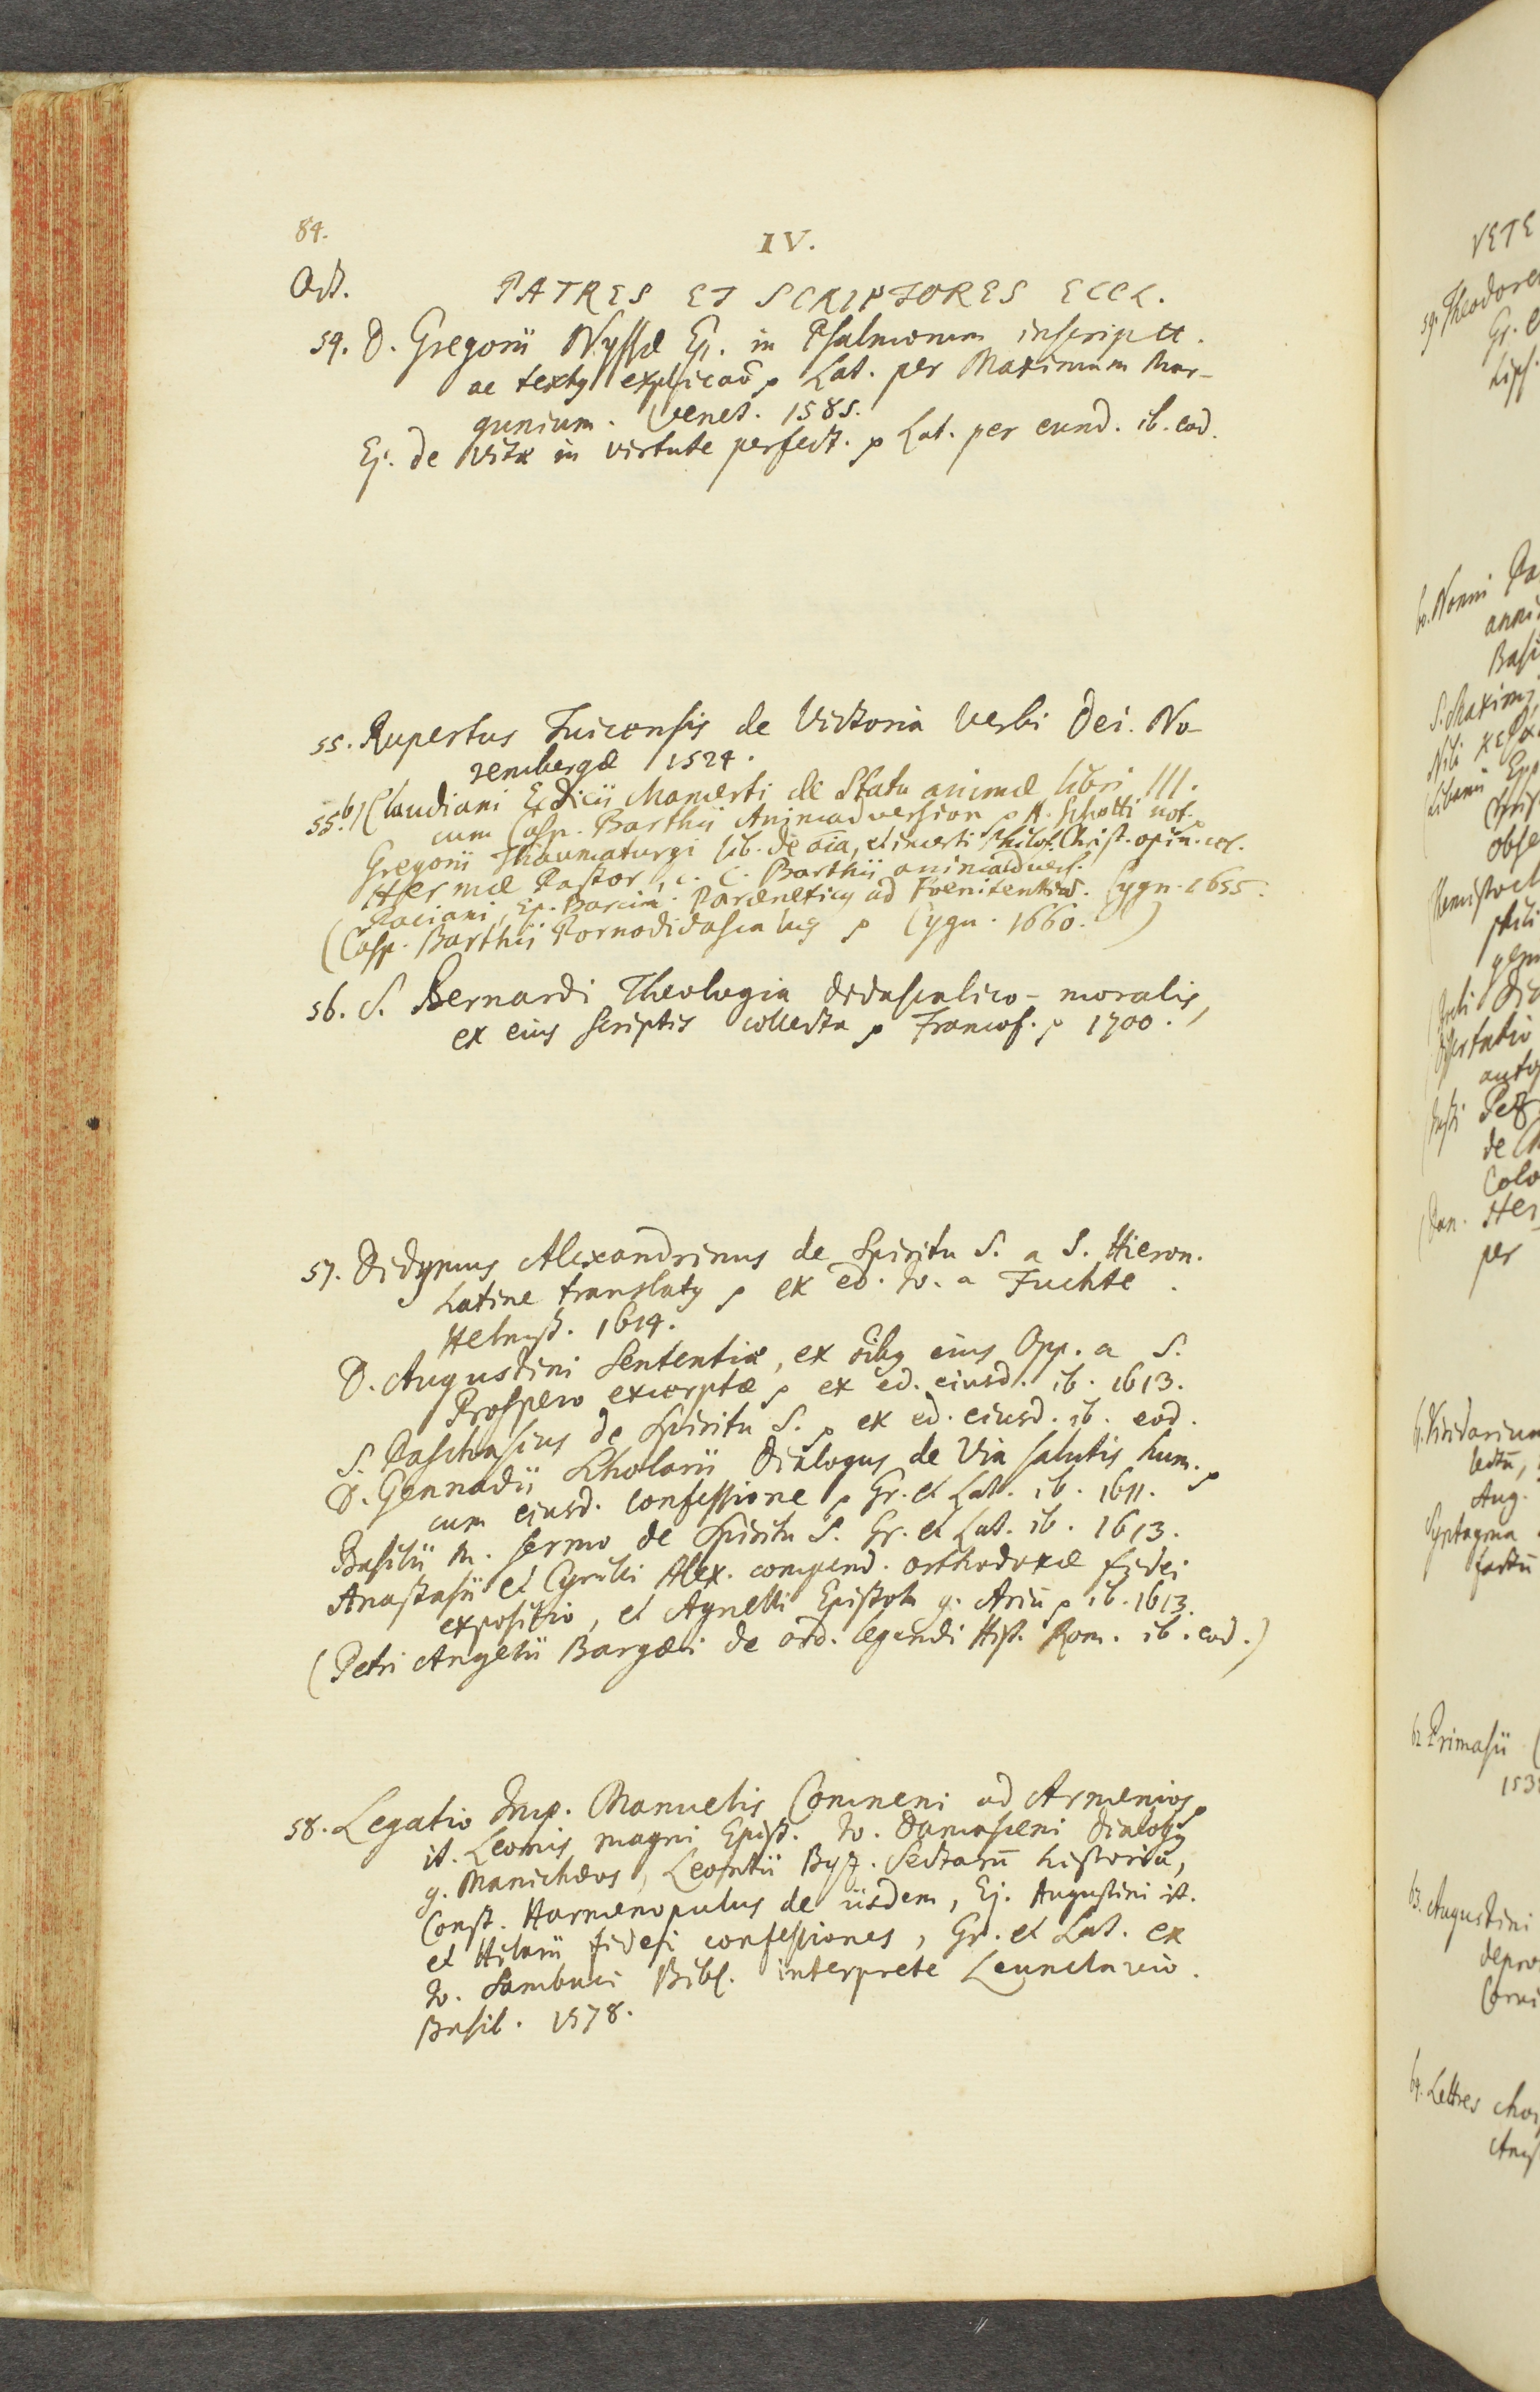 84.
IV.
Oct.
PATRES ET SCRIPTORES ECCL.
54. D. Gregorii Nyssæ Ep. in Psalmorum inscriptt.
ac textq explicaō p Lat. per Maximum Mar-
gunium. Venet. 1585.
Ej. de vitæ in virtute perfect. p Lat. per eund. ib. eod.
55. Rupertus Tuicensis de Victoria Verbi Dei. No-
rembergæ 1524.
55.b) Claudiani Ecdicii Mamerti de Statu animæ libri III.
cum Casp. Barthii Animadversion p A. Schotti not. p
Gregorii Thaumaturgi lib. de aīa, et incerti Philos. Christ. opin.
Hermæ Pastor, c. C. Barthii animadvers.
Paciani, Ep. Barcin. Paræneticq ad Pœnitentiā. Cygn. 1655.
(Casp. Barthii Pornodidascalus p Cygn. 1660.)
56. S. Bernardi Theologia didascalico-moralis,
ex eius scriptis collecta p Francof. p 1700.
57. Didymus Alexandrinus de Spiritu S. a S. Hieron.
Latine translatq p ex ed. Jo. a Fuchte.
Helmst. 1614.
D. Augustini Sententiæ, ex oībq eius Opp. a S.
Prospero excerptæ p ex ed. eiusd. ib. 1613.
S. Paschasius de Spiritu S. p ex ed. eiusd. ib. eod.
D. Gennadii Scholarii Dialogus de Via salutis hum. p
cum eiusd. confessione p Gr. et Lat. ib. 1611.
Basilii M. sermo de Spiritu S. Gr. et Lat. ib. 1613.
Anastasii et Cyrilli Alex. compend. orthodoxæ fidei
expositio, et Agnelli Epistola g. Ariū p ib. 1613.
(Petri Angelii Bargæi de ord. legendi Hist. Rom. ib. eod.)
58. Legatio Imp. Manuelis Comneni ad Armenios p
it. Leonis magni Epist. Jo. Damasceni Dialogq
g. Manichæos, Leontii Byz. Sectarū historiā,
Const. Harmenopulus de iisdem, Ej. Augustini it.
et Hilarii fidei confessiones, Gr. et Lat. ex
Jo. Sambuci Bibl. interprete Leunclavio.
Basil. 1578.
VETE
59. Theodore
Gr. e
Lips.
60. Nonni Pa
Basi
S. Maximi
Libanii Epp
obse
de
Colo
Dan. Her
per
61. Viridarium
Aug.
Syntagma
62. Primasii
153
63. Augustini
64. Lettres choi